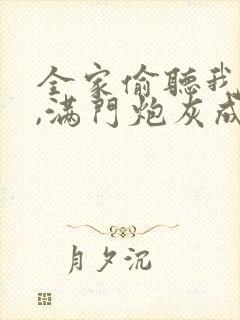 全家偷聽我
,满門炮灰成
月夕沉